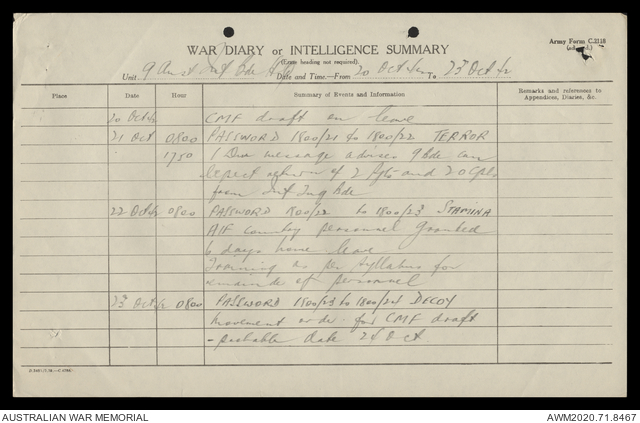 Army Form C.2118
WAR DIARY or INTELLIGENCE SUMMARY
(Erase heading not required).
Unit 9 Aust Inf Bde HQ Date and Time.—From 20 Oct 42 To 23 Oct 42
Place Date Hour Summary of Events and Information Remarks and references to Appendices, Diaries, &c.
20 Oct 42 CMF draft on leave
21 Oct 0800 PASSWORD 1800/21 to 1800/22 TERROR
1750 1 Div message advises 9 Bde can
expect return of 2 Sgts and 20 Cpls
from Inf Trg Bde
22 Oct 42 0800 PASSWORD 1800/22 to 1800/23 STAMINA
AIF country personnel granted
6 days home leave
Training as per syllabus for
remainder of personnel
23 Oct 42 0800 PASSWORD 1800/23 to 1800/24 DECOY
Movement order for CMF draft
- probable date 28 Oct.
AUSTRALIAN WAR MEMORIAL
AWM2020.71.8467